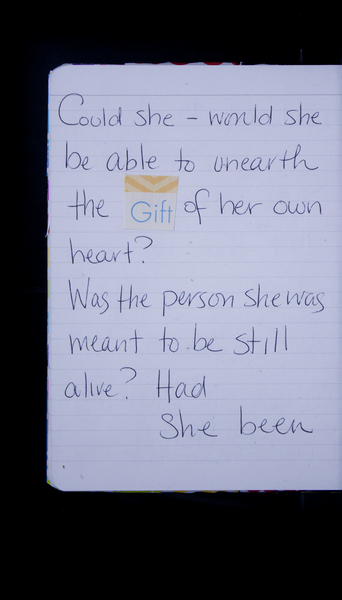 Could she - would she
be able to unearth
the Gift of her own
heart?
Was the person she was
meant to be still
alive? Had
She been